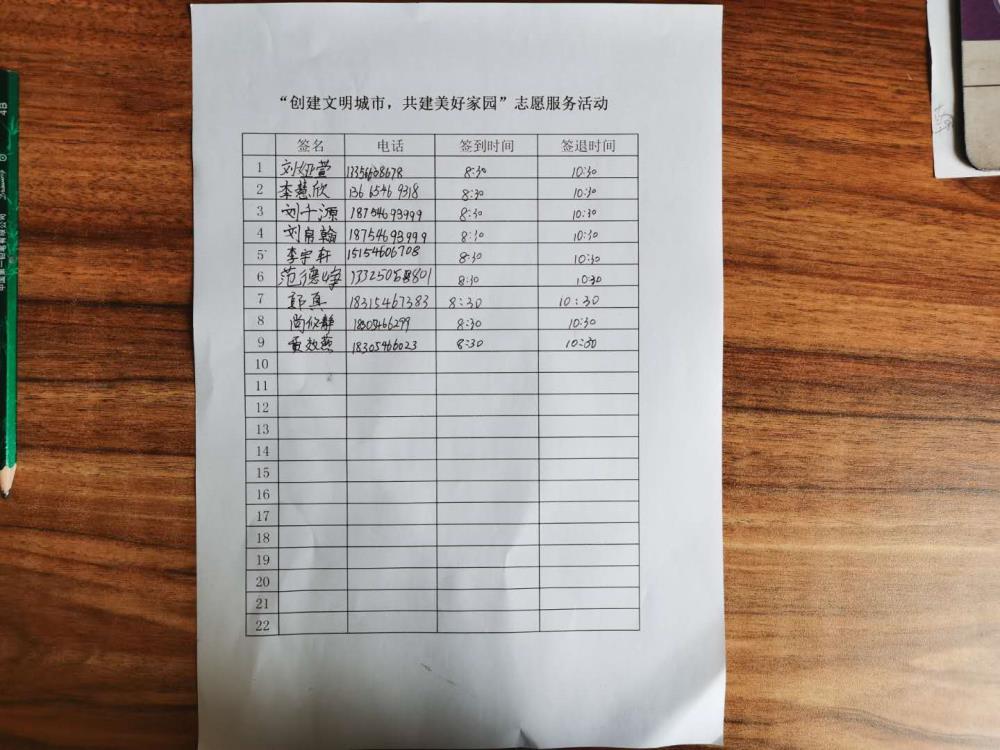 “创建文明城市，共建美好家园”志愿服务活动
签名 电话 签到时间 签退时间
1 刘红萱 13356608678 8:30 10:30
2 李慧欣 136 6546 9318 8:30 10:30
3 刘千源 18754693999 8:30 10:30
4 刘帛翰 18754693999 8:30 10:30
5 李宇轩 15154606708 8:30 10:30
6 范德峰 8:30 10:30
7 郎真 18315467383 8:30 10:30
8 尚 静 18305466299 8:30 10:30
9 黄效燕 18305466023 8:30 10:30
10
11
12
13
14
15
16
17
18
19
20
21
22
4B
中国第一铅笔有限公司